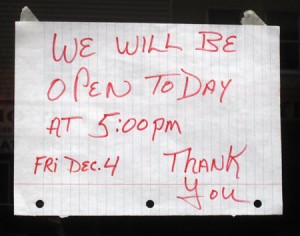 WE WILL BE
OPEN TODAY
AT 5:00pm
FRi DEC. 4 THANK
You